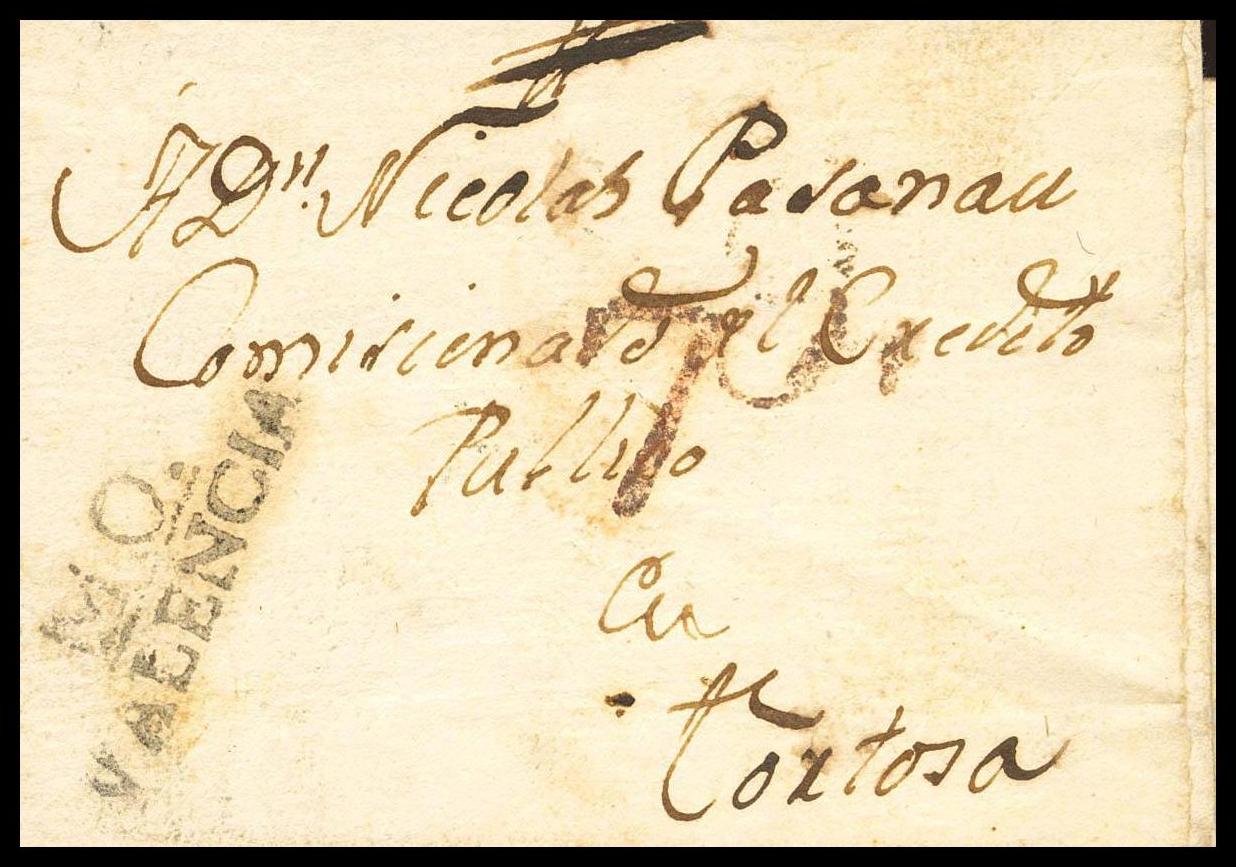 A Dn. Nicolas Pasanau
Comisionado del Credito
Publico
En
Tortosa
M.O.
VALENCIA
7